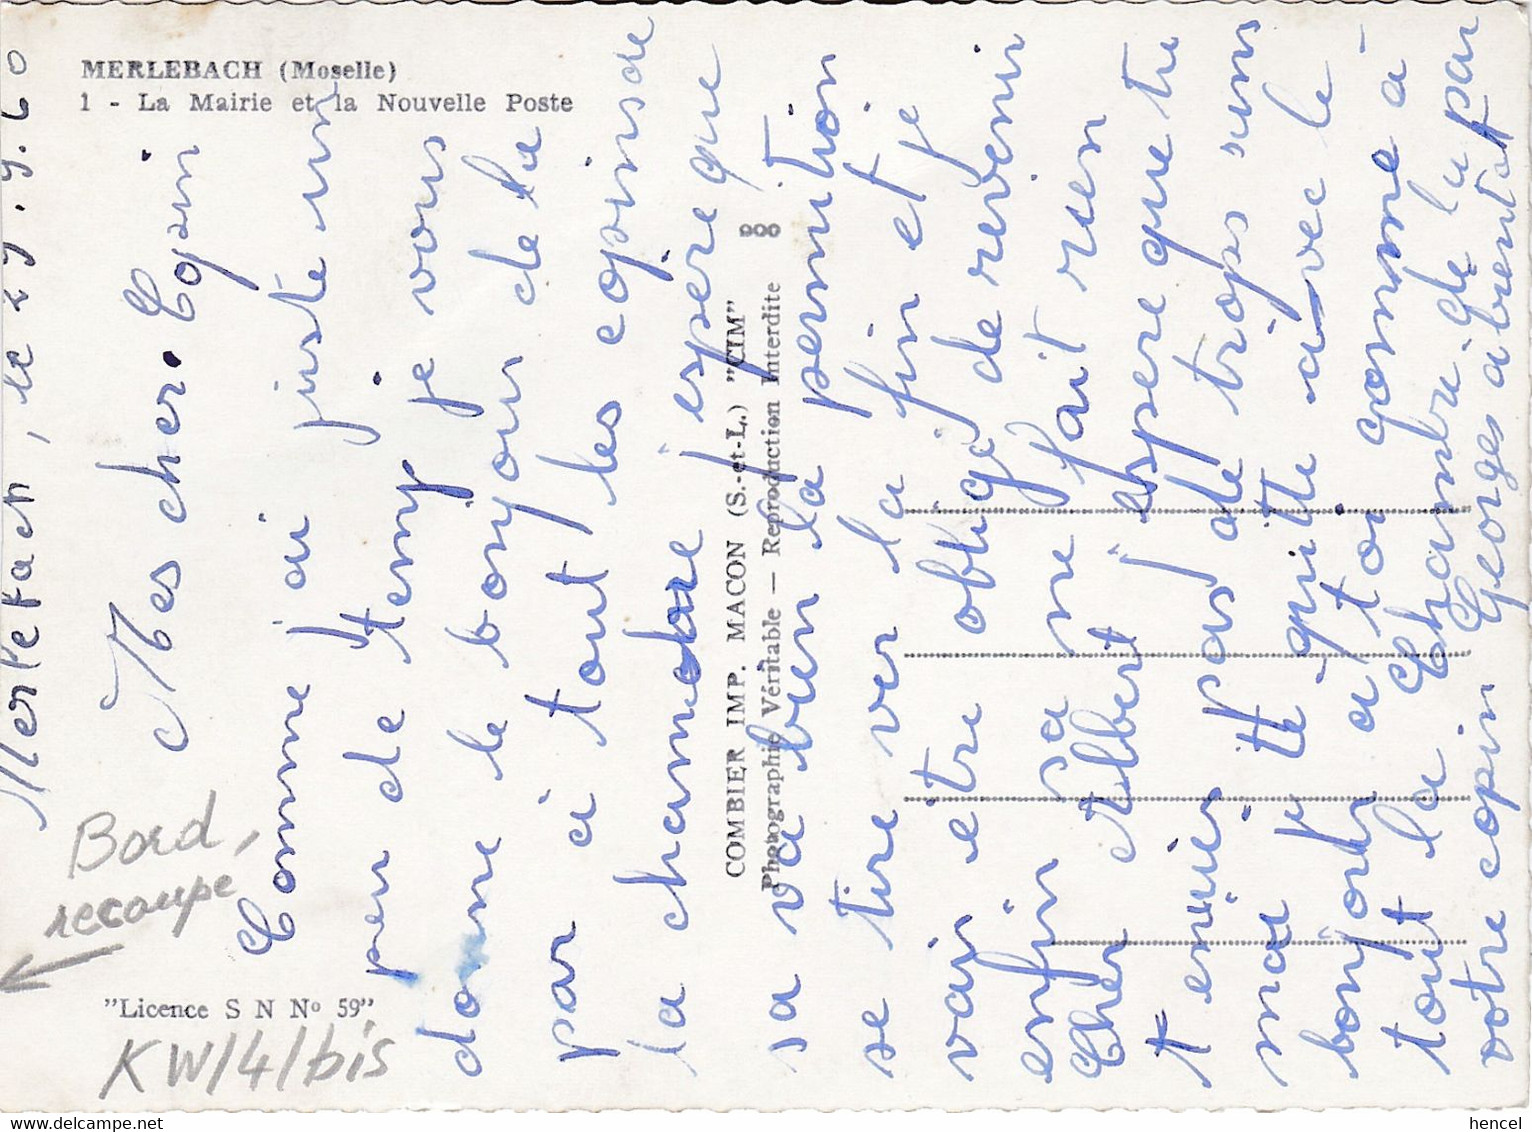 MERLEBACH (Moselle)
1 - La Mairie et la Nouvelle Poste
Merlebach, le 29.9.60
Mes cher. Copin
Comme j'ai juste un
peu de temp je vous
donne le bonjour de la
par à tout les copins de
la chambre j'espere que
sa va bien la permition
se tire ver la fin et je
vais etre obligé de revenir
enfin sa ne fait rien
Cher Albert j'espere que tu
t enuies pas de trops sans
moi je te quitte avec le
bonjour à toi comme à
tout la Chambré de la par
votre copin Georges à bientot
COMBIER IMP. MACON (S.-et-L.) "CIM"
Photographie Véritable — Reproduction Interdite
Bord,
recoupe
"Licence S N Nº 59"
KW/4/bis
hencel